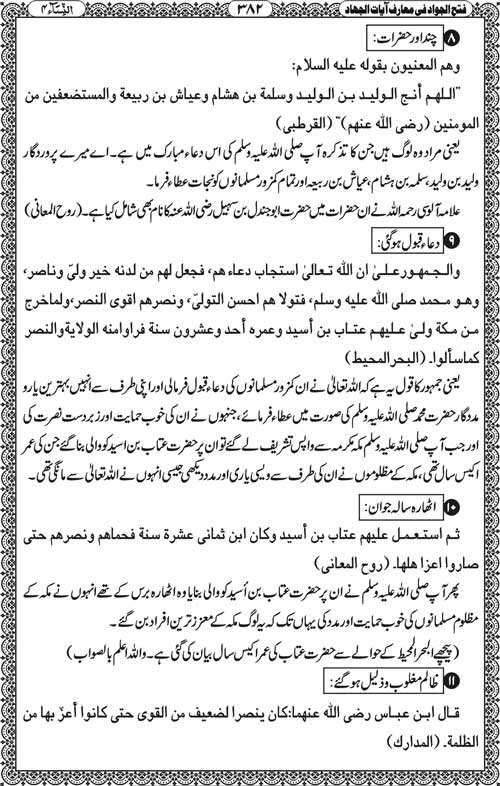 فتح الجواد فی معارف آیات الجهاد ۳۸۲ النِّسَآء ۴
۸ چند اور حضرات:
وهم المعنيون بقوله عليه السلام:
"اللهم أنج الوليد بن الوليد وسلمة بن هشام وعياش بن ربيعة والمستضعفين من
المومنين (رضى الله عنهم)" (القرطبى)
یعنی مراد وہ لوگ ہیں جن کا تذکرہ آپ صلی اللہ علیہ وسلم کی اس دعاء مبارک میں ہے۔ اے میرے پروردگار
ولید بن ولید، سلمہ بن ہشام، عیاش بن ربیعہ اور تمام کمزور مسلمانوں کو نجات عطاء فرما۔
علامہ آلوسی رحمہ اللہ نے ان حضرات میں حضرت ابوجندل بن سہیل رضی اللہ عنہ کا نام بھی شامل کیا ہے۔ (روح المعانی)
۹ دعاء قبول ہوگئی:
والجمهور على ان الله تعالىٰ استجاب دعاء هم، فجعل لهم من لدنه خير ولىّ وناصر،
وهو محمد صلى الله عليه وسلم، فتولا هم احسن التولىّ، ونصرهم اقوى النصر، ولماخرج
من مكة ولىٰ عليهم عتاب بن أسيد وعمره أحد وعشرون سنة فراوامنه الولاية والنصر
كماسألوا۔ (البحرالمحيط)
یعنی جمہور کا قول یہ ہے کہ اللہ تعالیٰ نے ان کمزور مسلمانوں کی دعاء قبول فرمالی اور اپنی طرف سے انہیں بہترین یار و
مددگار حضرت محمد صلی اللہ علیہ وسلم کی صورت میں عطاء فرمائے، جنہوں نے ان کی خوب حمایت اور زبردست نصرت کی
اور جب آپ صلی اللہ علیہ وسلم مکہ مکرمہ سے واپس تشریف لے گئے تو ان پر حضرت عتاب بن اسید کو والی بنا گئے جن کی عمر
اکیس سال تھی، مکہ کے مظلوموں نے ان کی طرف سے ویسی یاری اور مدد دیکھی جیسی انہوں نے اللہ تعالیٰ سے مانگی تھی۔
۱۰ اٹھارہ سالہ جوان:
ثم استعمل عليهم عتاب بن أسيد وكان ابن ثمانى عشرة سنة فحماهم ونصرهم حتى
صاروا اعزا هلها۔ (روح المعانى)
پھر آپ صلی اللہ علیہ وسلم نے ان پر حضرت عتاب بن أسید کو والی بنایا وہ اٹھارہ برس کے تھے انہوں نے مکہ کے
مظلوم مسلمانوں کی خوب حمایت اور مدد کی یہاں تک کہ یہ لوگ مکہ کے معزز ترین افراد بن گئے۔
(پیچھے البحر المحیط کے حوالے سے حضرت عتاب کی عمر اکیس سال بیان کی گئی ہے۔ واللہ اعلم بالصواب)
۱۱ ظالم مغلوب و ذلیل ہوگئے:
قال ابن عباس رضى الله عنهما: كان ينصرا لضعيف من القوى حتى كانوا أعزّ بها من
الظلمة۔ (المدارك)